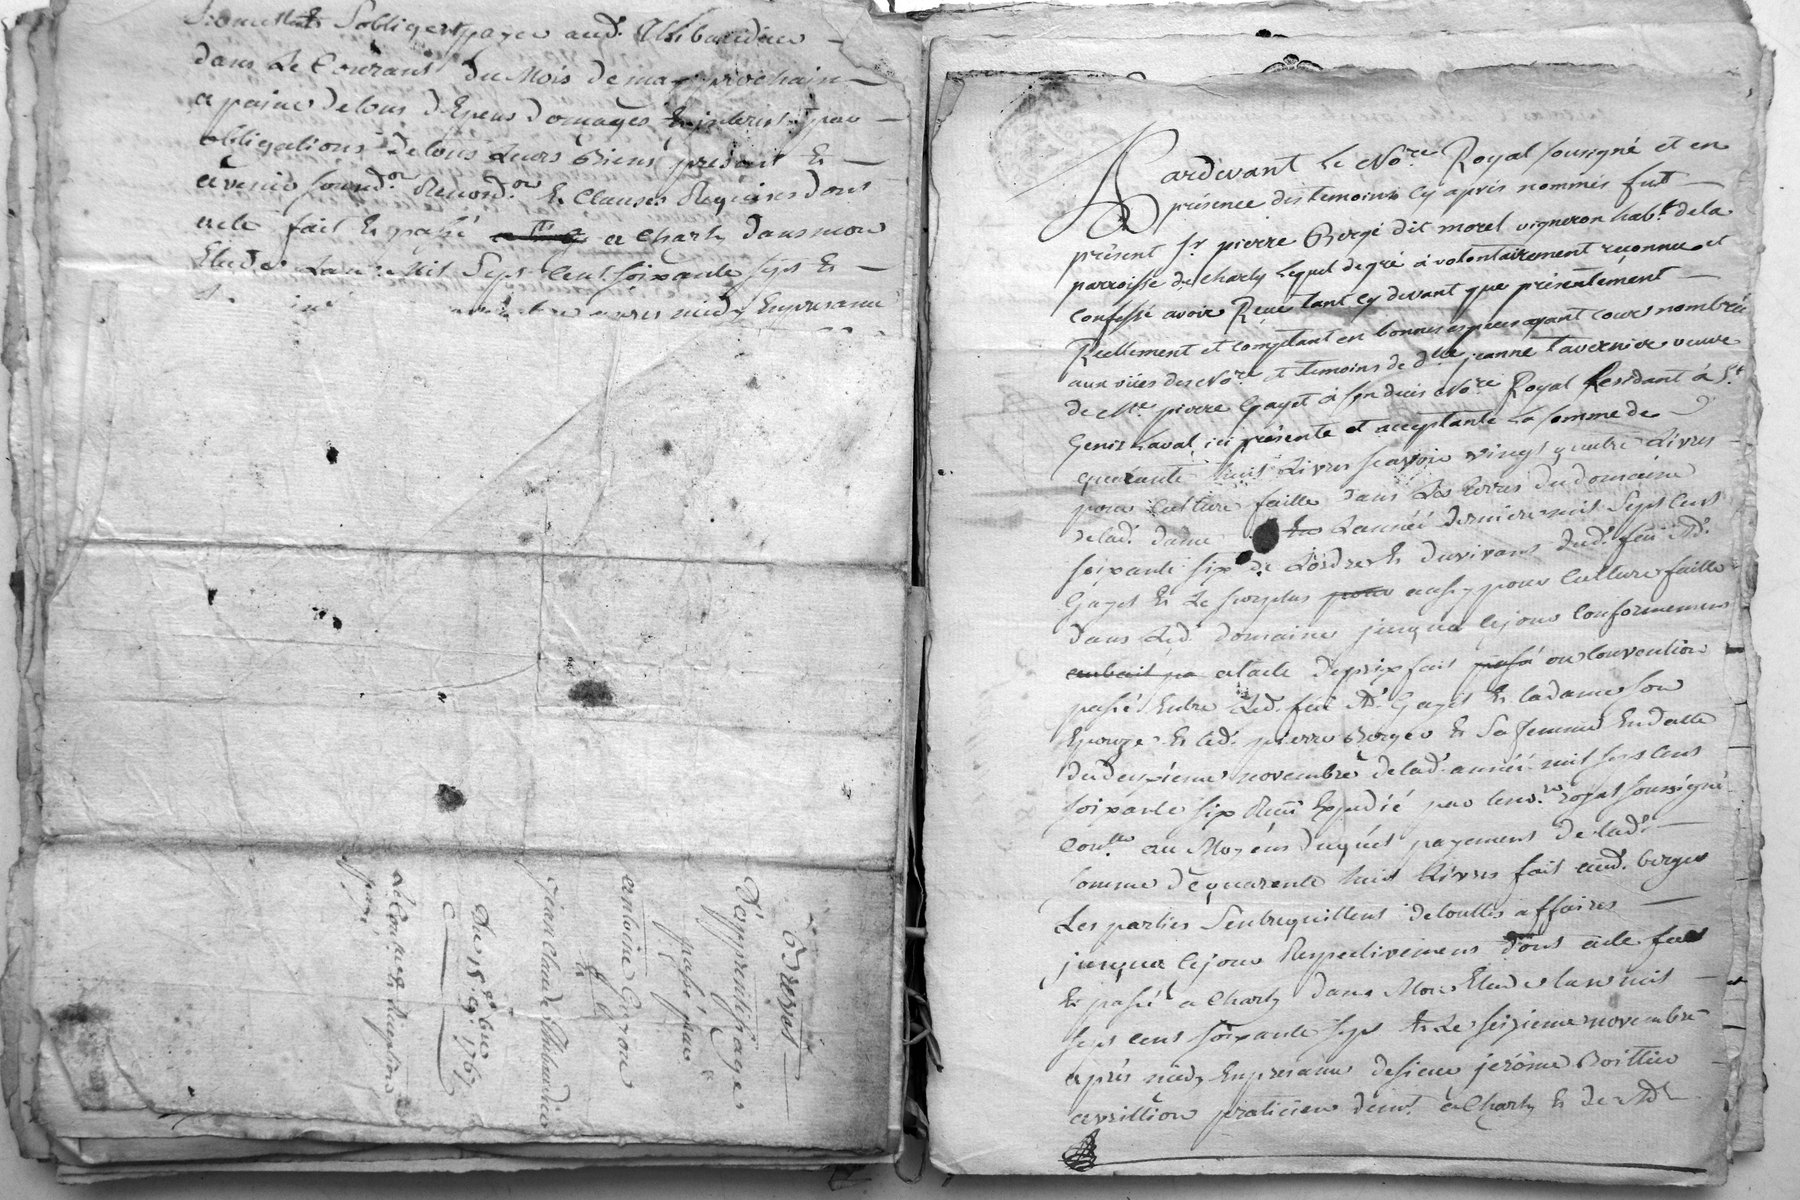 Promettent & S'obligent payer aud. Thibaudier
dans Le Courant du Mois de may prochain
a paine de tous d'Epens domages & interests par
obligations de tous Leurs Biens présent &
avenir & Clauses Requises dont
acte fait & passé a Charly dans mon
Etude L'an Mil Sept Cent soixante sept &
après midy En presance
Brevet
D'apprentissage
passé par
antoine
&
Jean Claude Thibaudier
Du 15e 9bre 1767
Le Controlle & Reception
payé
Pardevant Le No.re Royal sousigné et en
présence des temoins Cy après nommés fut
présent Sr. pierre Bergé dit morel vigneron hab.t de la
parroisse de charly Lequel de gré à volontairement reconnu et
Confessé avoir Reçue tant cy devant que présentement
Réellement et comptant en bonnes espèces ayant cour nombrée
aux vües desd No.re et temoins de d.lle jeanne tavernier veuve
de Me. pierre Gayet à son décès No.re Royal Residant à St.
Genis Laval ici présente et acceptante La somme de
quarante huit Livres scavoir vingt quatre Livres
pour Culture faitte dans Les terres du domaine
de lad. dame L'année derniere mil Sept Cent
soixante six de L'ordre & du vivant dud. feu Md.
Gayet & Le surplus pour aussy pour Culture faitte
dans Led. domaine jusqua cejour Conformement
a l'acte deprixfait passé ou Convention
passé Entre Led. feu Md. Gayet & la dame son
Epouze & led. pierre Berger & Sa femme En datte
du deuxieme novembre de lad. année mil sept cent
soixante six Reçu Expedié par le no.re royal soussigné
Con.llé au Moyens duquel payement de lad.
somme de quarante huit Livres fait aud. berger
Les parties S'entrequittent de touttes affaires
jusqua cejour Respectivement dont acte fait
& passé a Charly dans Mon Etude l'an mil
sept cent soixante sept & Le seizieme novembre
après midy En presance de sieur jérôme Boittier
praticien dem.t a Charly & de Md